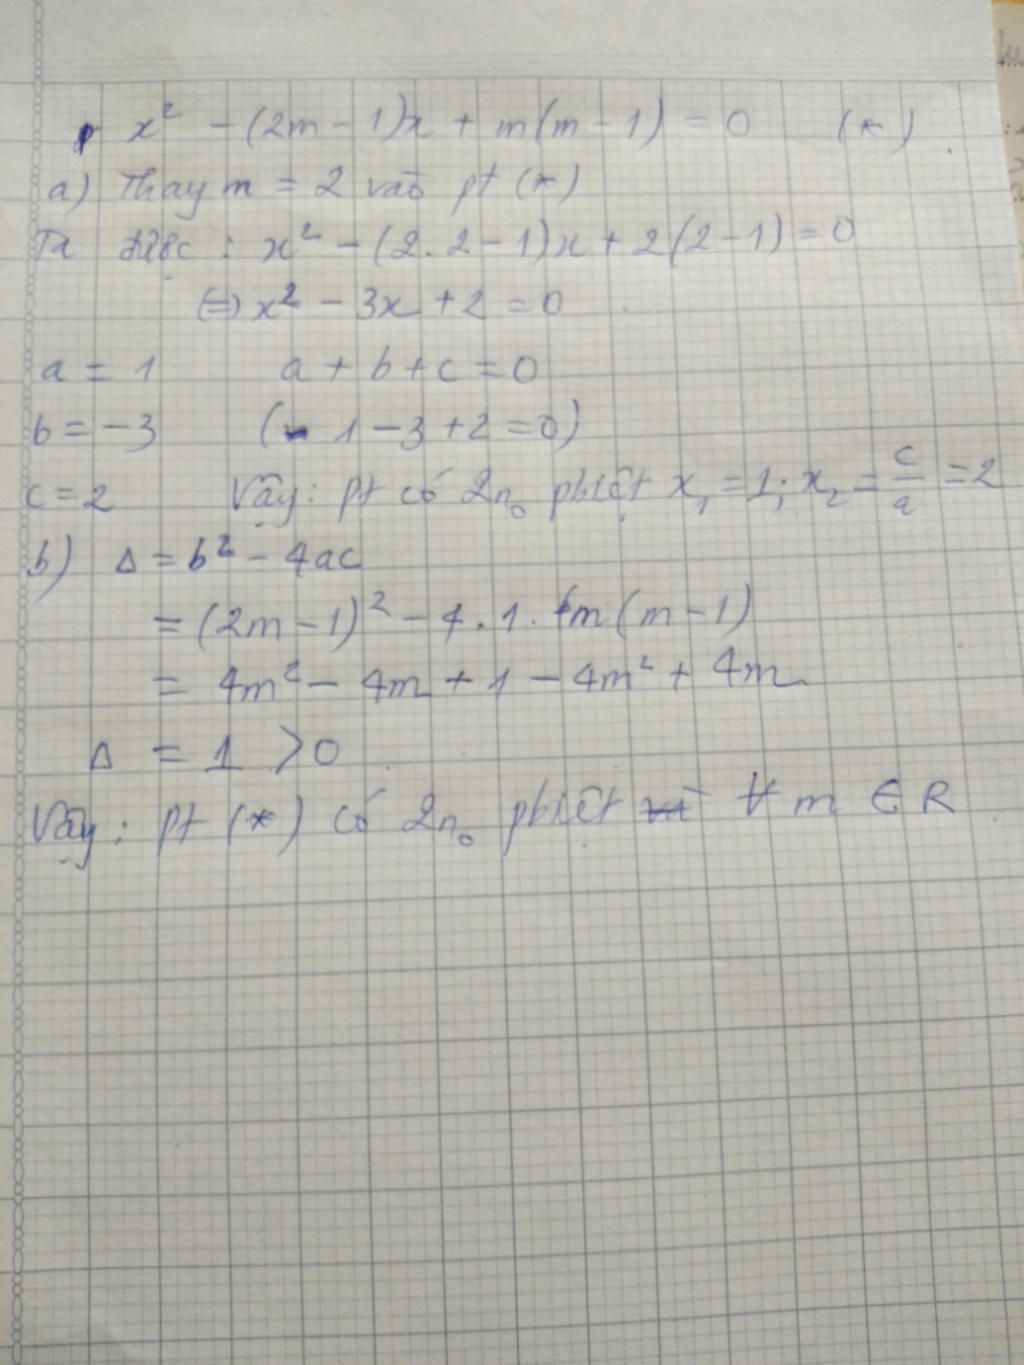 x² - (2m - 1)x + m(m - 1) = 0 (*)
a) Thay m = 2 vào pt (*)
Ta được : x² - (2.2 - 1)x + 2(2-1) = 0
(=) x² - 3x + 2 = 0
a = 1 a + b + c = 0
b = -3 (1 - 3 + 2 = 0)
c = 2 Vậy: pt có 2n₀ pbiệt x₁ = 1; x₂ = c/a = 2
b) Δ = b² - 4ac
= (2m - 1)² - 4.1.m(m - 1)
= 4m² - 4m + 1 - 4m² + 4m
Δ = 1 > 0
Vậy: pt (*) có 2n₀ pbiệt ∀ m ∈ R